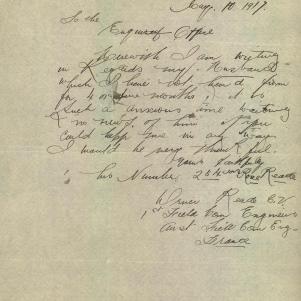 Aug. 10. 1917.
To the
Enquiry Office
Herewith I am writing
in Regards my Husband
which I have not heard from
for months it is
such a anxious time waiting
& no news of him if you
could help me in any way
I would be very thankful.
Yours faithfully
his Number 254 Reade
Driver Reade E.V.
1st Field Coy Engineers
Aust Field Coy Eng
France